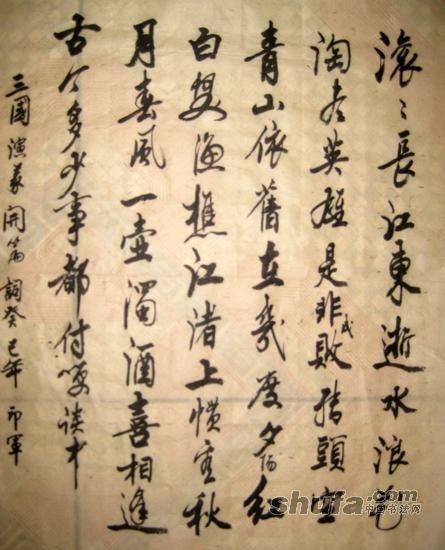 滚〻長江東逝水浪花
淘尽英雄是非成敗转頭空
青山依舊在幾度夕阳红
白发渔樵江渚上惯看秋
月春风一壶濁酒喜相逢
古今多少事都付笑谈中
三國演義開篇詞癸巳年 印軍
shufa.com
中国书法网